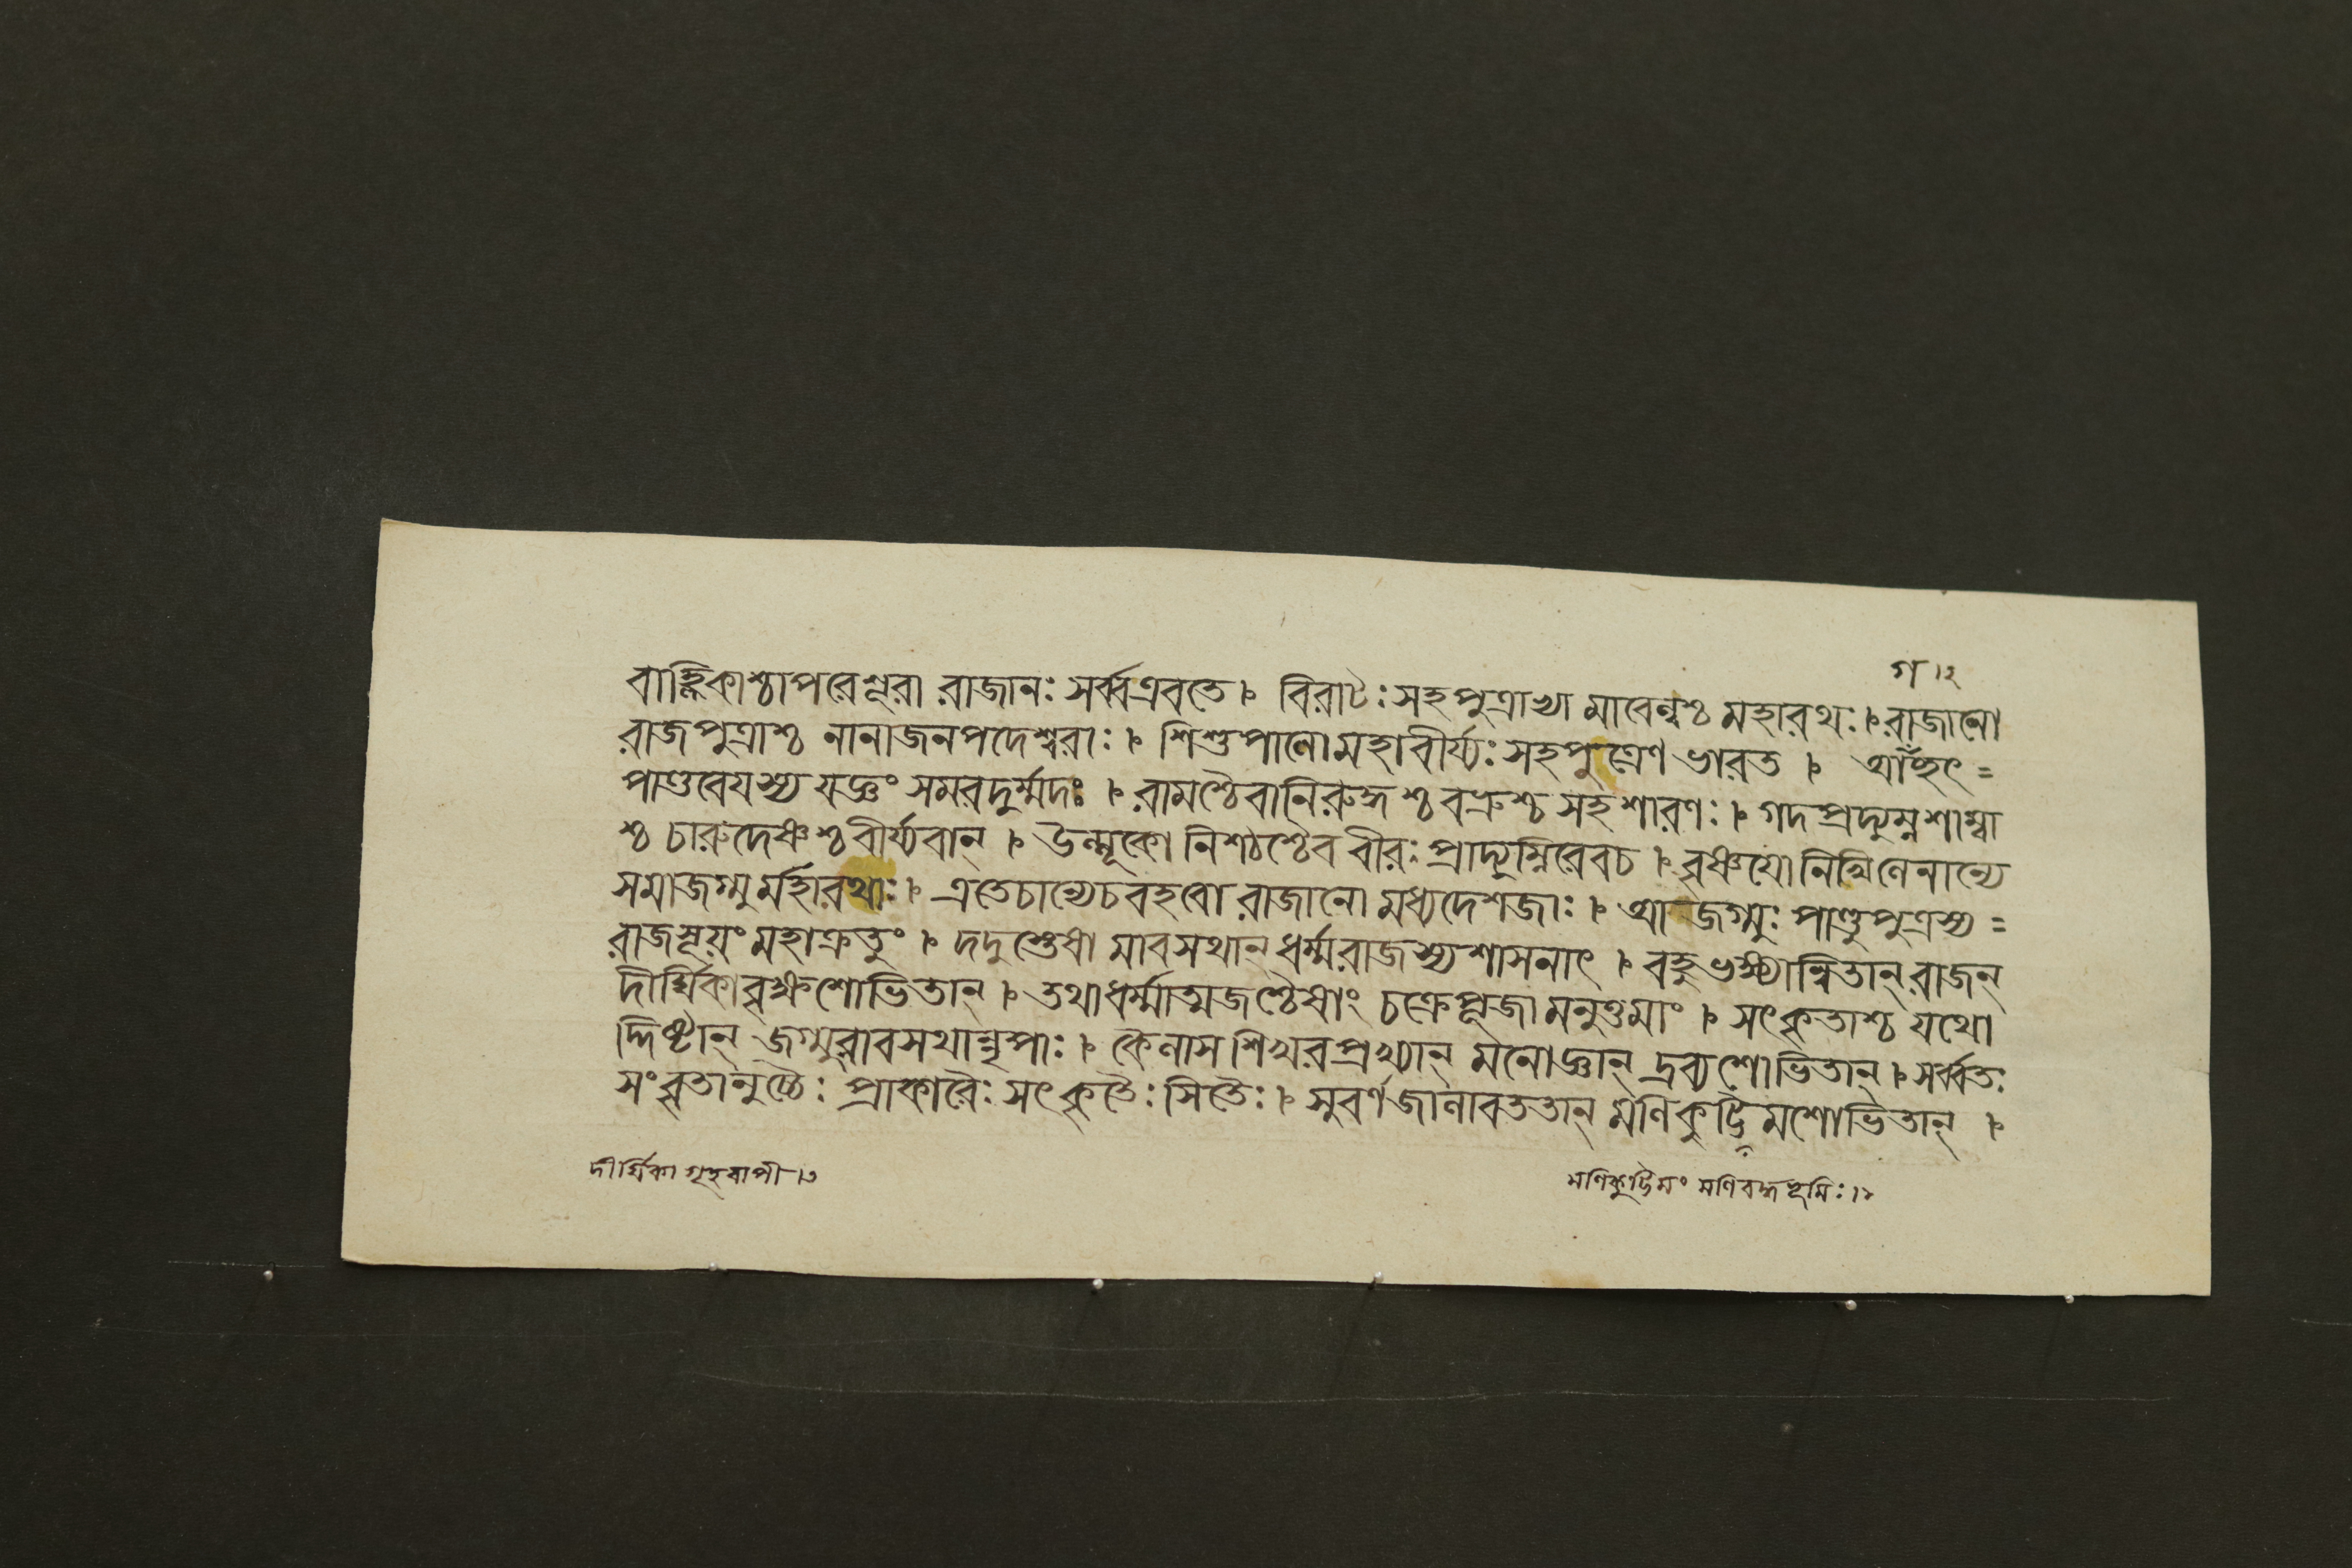 গ ১২
বাহ্লিকাশ্চাপরেশূরা রাজানঃ সর্ব্বএবতে । বিরাটঃ সহপুত্রাভ্যা মাবেল্বশ্চ মহারথঃ । রাজানো
রাজপুত্রাশ্চ নানাজনপদেশ্বরাঃ । শিশুপালো মহাবীর্য্যঃ সহপুত্রেণ ভারত ।
পাণ্ডবেয়স্য যজ্ঞং সমরদুর্ম্মদঃ । রামশ্চৈবানিরুদ্ধশ্চ বভ্রুশ্চ সহশারণঃ । গদপ্রদ্যুম্নশাম্বা
শ্চ চারুদেষ্ণশ্চবীর্য্যবান্ । উল্মূকো নিশঠশ্চৈব বীরঃ প্রাদ্যুম্নিরেবচ । বৃষ্ণয়ো নিখিলেনান্যে
সমাজগ্মু র্মহারথাঃ । এতেচান্যেচবহবো রাজানো মধ্যদেশজাঃ । আজগ্মুঃ পাণ্ডুপুত্রস্য =
রাজসূয়ং মহাক্রতুং । দদুস্তেষা মাবসথান্ ধর্ম্মরাজস্যশাসনাৎ । বহুভক্ষ্যান্বিতান্ রাজন্
দীর্ঘিকাবৃক্ষশোভিতান্ । তথাধর্ম্মাত্মজশ্চৈষাং চক্রেপূজা মনুত্তমাং । সৎকৃতাশ্চ যথো
দ্দিষ্টান্ জগ্মুরাবসথান্নৃপাঃ । কৈলাসশিখরপ্রখ্যান্ মনোজ্ঞান্ দ্রব্যশোভিতান্ । সর্ব্বতঃ
সংবৃতানুচ্চৈঃ প্রাকারৈঃ সৎকৃতৈঃ সিতৈঃ । সুবর্ণজালাবততান্ মণিকুট্টিমশোভিতান্ ।
দীর্ঘিকা গৃহবাপী ।৩
মণিকুট্টিমং মণিবদ্ধভূমিঃ ।১